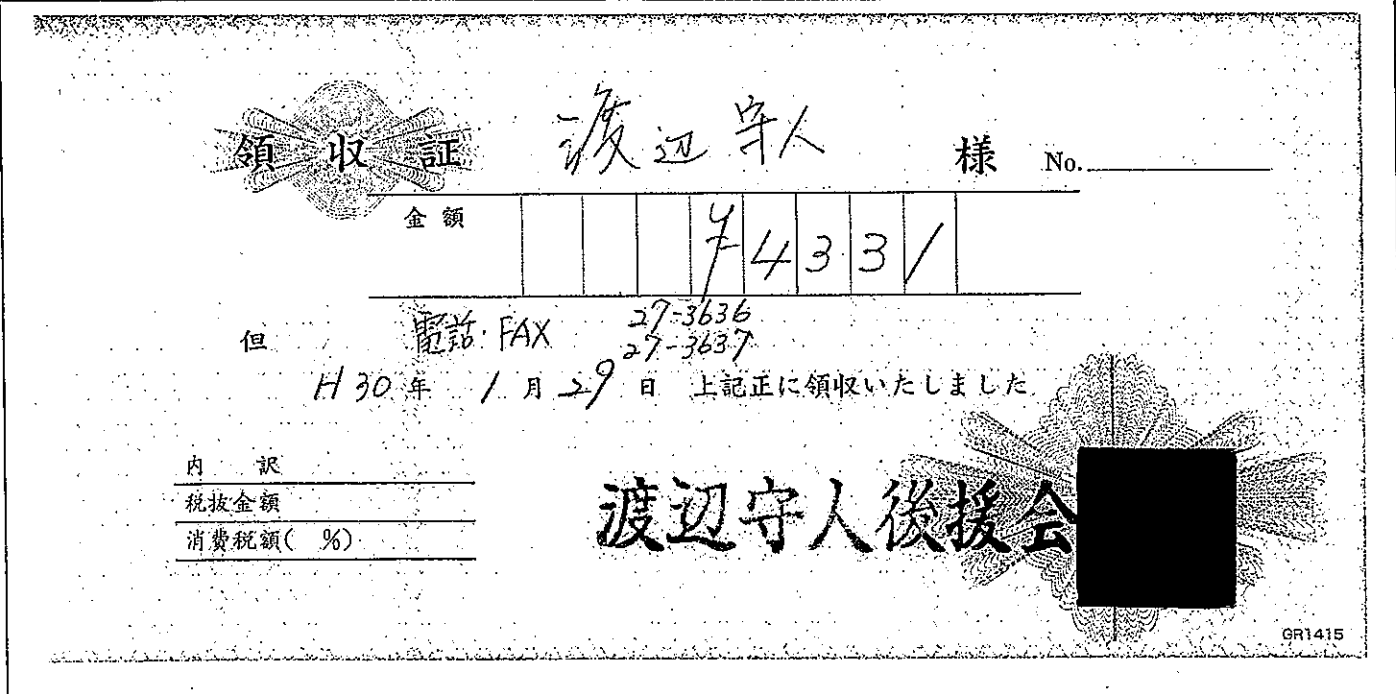 領収証 渡辺守人 様 No.
金額 ¥4331
但 電話・FAX 27-3636
27-3637
H30年 1月29日 上記正に領収いたしました
内訳
税抜金額
消費税額( %)
渡辺守人後援会
GR1415